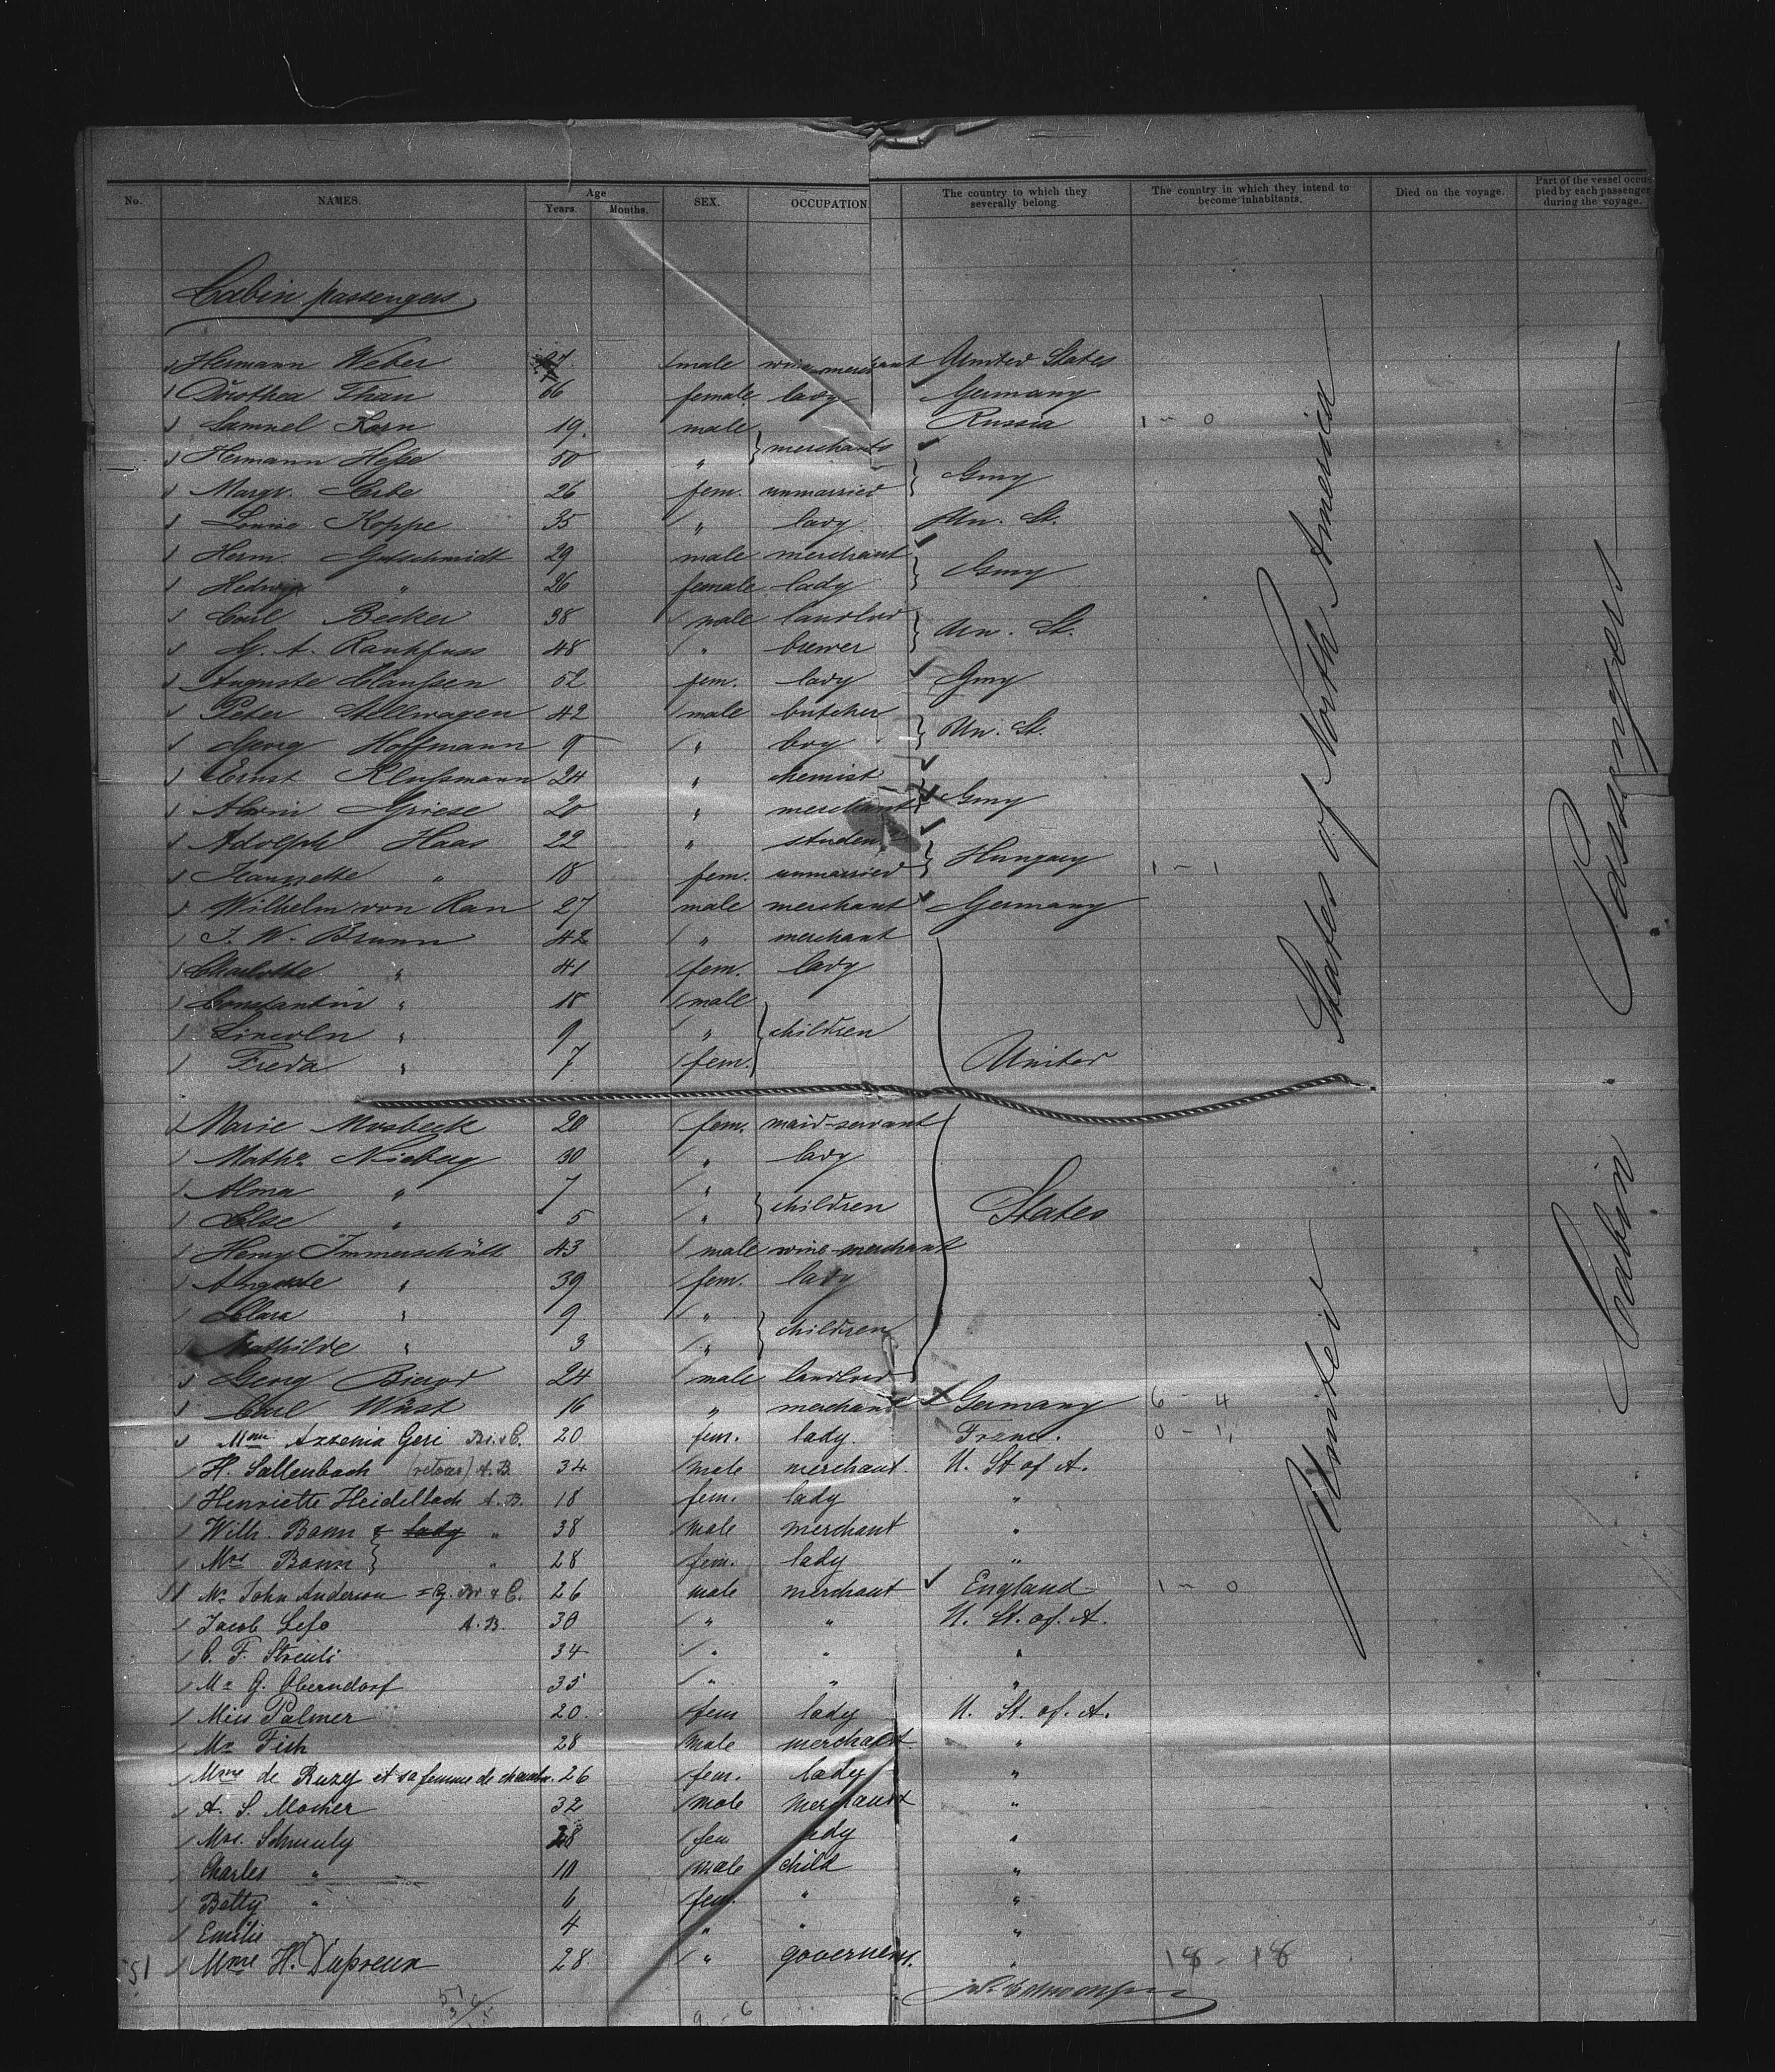 No. NAMES. Age Years. Months. SEX. OCCUPATION The country to which they severally belong. The country in which they intend to become inhabitants. Died on the voyage. Part of the vessel occupied by each passenger during the voyage.
Cabin passengers
Hermann Weber male wine merchant United States
Dorothea Than 66 female lady Germany
Samuel Korn 19 male Russia 1 - 0
Hermann Heße 50 " } merchants
Margr. 26 fem. unmarried } Gmy
Louise Koppe 35 " lady Un. St.
Herm. Gutschmidt 29 male merchant
Hedwig " 26 female lady } Gmy
Carl Becker 38 male landlord
G. A. Rankfuss 48 " brewer } Un. St.
Auguste Claußen 52 fem. lady Gmy
Peter Stellwagen 42 male butcher
Georg Hoffmann 9 " boy } Un. St.
Ernst Klußmann 24 " chemist
Alwin Griese 20 " merchant } Gmy
Adolph Haas 22 " student
Jeannette " 18 fem. unmarried } Hungary 1 - 1
Wilhelm von Rau 27 male merchant Germany
J. W. Brunn 42 " merchant
Charlotte " 41 fem. lady
Constantin " 18 male
Lincoln " 9 " } children
Freda " 7 fem. United
Marie Mosbeck 20 fem. maid-servant
Mathe. Nieburg 30 " lady
Alma " 7 "
Else " 5 " } children States
Henry Immerschütt 43 male wine-merchant
Auguste " 39 fem. lady
Clara " 9 "
Mathilde " 3 " } children
Georg 24 male landlord
Carl Wüst 16 " merchand Germany 6 - 4
Mme Arsenia Geri Br. & C. 20 fem. lady. France. 0 - 1
H. Sallenbach (retour) A. B. 34 male merchant. U. St of A.
Henriette Heidelbach A. B. 18 fem. lady "
Wilh. Bonn & lady " 38 male merchant "
Mrs Bonn } " 28 fem. lady "
Mr. John Anderson Br. & C. 26 male merchant England 1 - 0
Jacob A. B. 30 " " U. St. of. A.
C. F. Streuli 34 " " "
Mr G. Oberndorf 35 " " "
Miss Palmer 20. fem lady U. St. of. A.
Mr Fish 28 male merchant "
Mme de Ruzy et sa femme de chambr. 26 fem. lady "
A. S. Mosher 32 male merchant "
Mrs. Schmuly 28 fem lady "
Charles " 10 male child "
Betty " 6 fem. " "
Emilie " 4 " " "
51 Mme H. Dupreux 28 " governess. " 18 - 18
9 - 6
United States of North America
Cabin Passengers